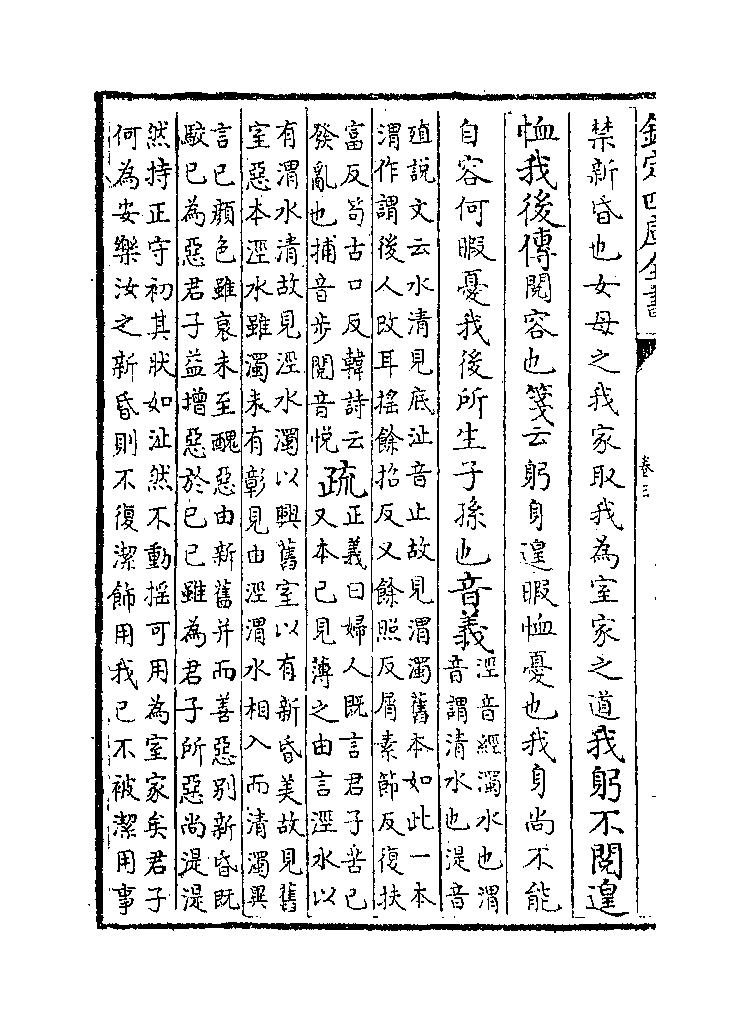 欽定四庫全書
卷三
禁新昏也女母之我家取我為室家之道我躬不閱遑
恤我後傳閱容也箋云躬身遑暇恤憂也我身尚不能
自容何暇憂我後所生子孫也音義
涇音經濁水也渭
音謂清水也湜音
殖說文云水清見底沚音止故見渭濁舊本如此一本
渭作謂後人改耳搖餘招反又餘照反屑素節反復扶
富反笱古口反韓詩云
發亂也捕音步閱音悅
疏
正義曰婦人既言君子苦已
又本已見薄之由言涇水以
有渭水清故見涇水濁以興舊室以有新昏美故見舊
室惡本涇水雖濁未有彰見由涇渭水相入而清濁異
言已顏色雖衰未至醜惡由新舊并而善惡別新昏既
駮已為惡君子益增惡於已已雖為君子所惡尚湜湜
然持正守初其狀如沚然不動搖可用為室家矣君子
何為安樂汝之新昏則不復潔飾用我已不被潔用事